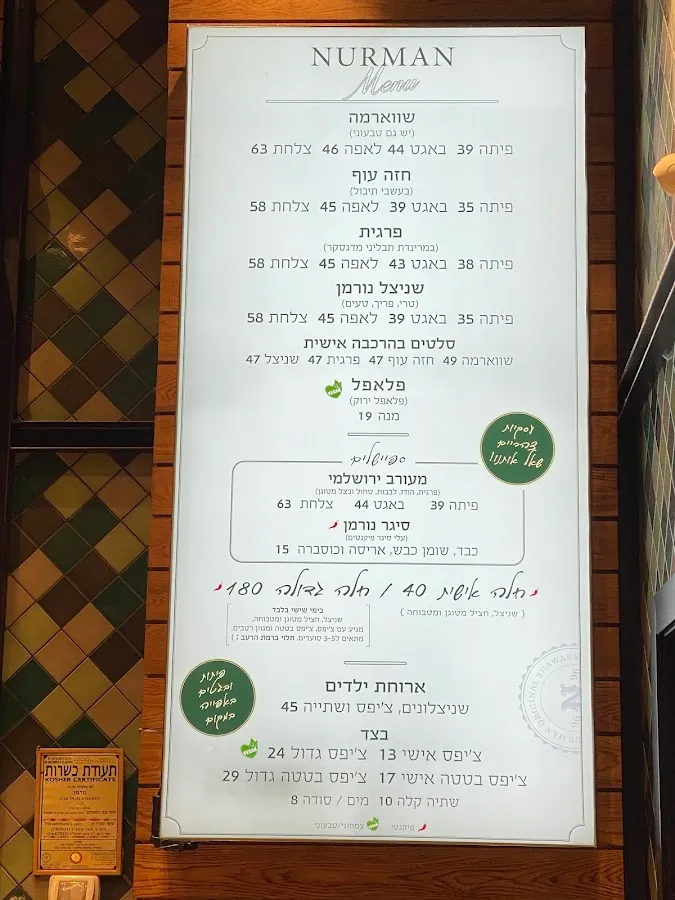 NURMAN
Menu
שווארמה
(יש גם טבעוני)
פיתה 39 באגט 44 לאפה 46 צלחת 63
חזה עוף
(בעשבי תיבול)
פיתה 35 באגט 39 לאפה 45 צלחת 58
פרגית
(במרינדת תבליני מדגסקר)
פיתה 38 באגט 43 לאפה 45 צלחת 58
שניצל נורמן
(טרי, פריך, טעים)
פיתה 35 באגט 39 לאפה 45 צלחת 58
סלטים בהרכבה אישית
שווארמה 49 חזה עוף 47 פרגית 47 שניצל 47
פלאפל
VEGAN
(פלאפל ירוק)
מנה 19
עסקיות
צהריים
שאל אותנו!
ספיישלים
מעורב ירושלמי
(פרגית, הודו, לבבות, טחול ובצל מטוגן)
פיתה 39 באגט 44 צלחת 63
סיגר נורמן
(עלי סיגר פיקנטים)
כבד, שומן כבש, אריסה וכוסברה 15
חלה אישית 40 / חלה גדולה 180
{ שניצל, חציל מטוגן ומטבוחה }
בימי שישי בלבד
שניצל, חציל מטוגן ומטבוחה,
מגיע עם צ'יפס, צ'יפס בטטה ומגוון רטבים.
מתאים ל3-5 סועדים, תלוי ברמת הרעב : )
פיתות
ובגטים
באפייה
במקום
ארוחת ילדים
שניצלונים, צ'יפס ושתייה 45
בצד
צ'יפס אישי 13 צ'יפס גדול 24
VEGAN
צ'יפס בטטה אישי 17 צ'יפס בטטה גדול 29
שתיה קלה 10 מים / סודה 8
פיקנטי צמחוני/טבעוני
תעודת כשרות
KOSHER CERTIFICATE
נורמן